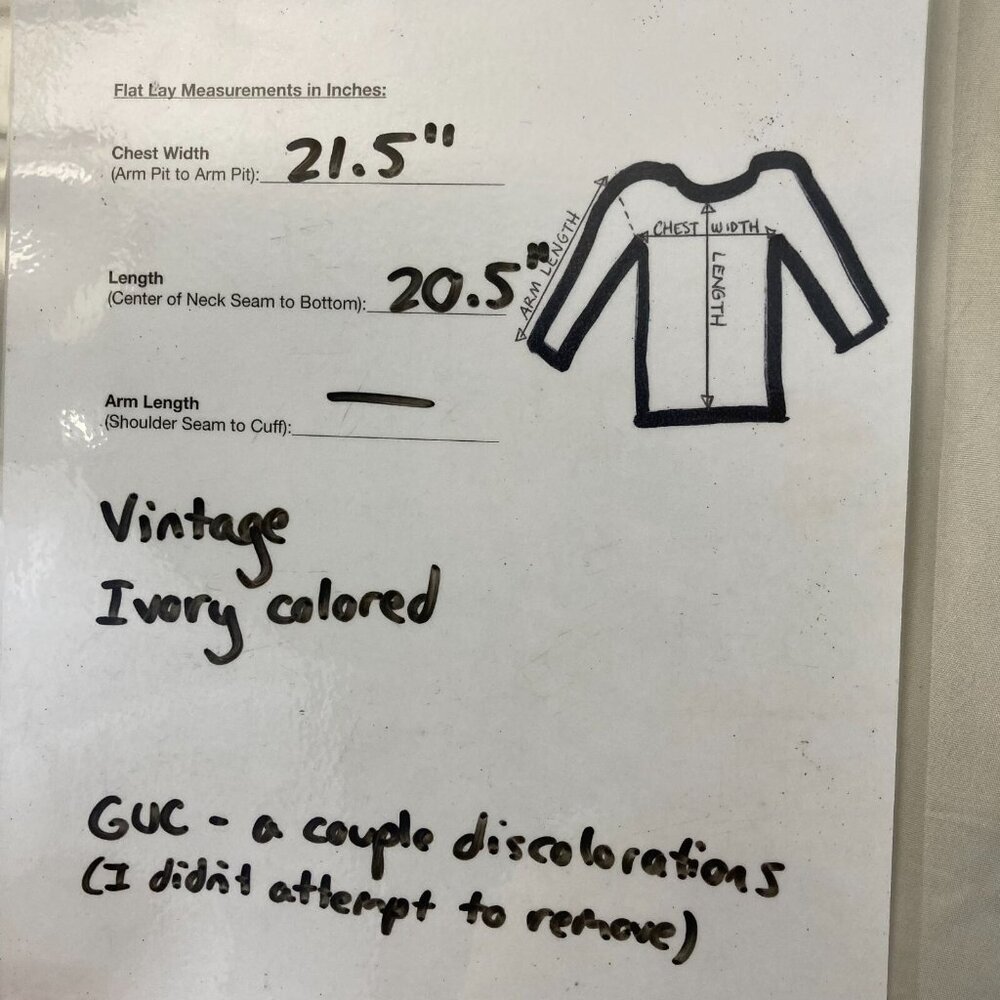 Flat Lay Measurements in Inches:
Chest Width
(Arm Pit to Arm Pit): 21.5"
Length
(Center of Neck Seam to Bottom): 20.5"
Arm Length
(Shoulder Seam to Cuff): —
ARM LENGTH
CHEST WIDTH
LENGTH
Vintage
Ivory colored
GUC - a couple discolorations
(I didn't attempt to remove)